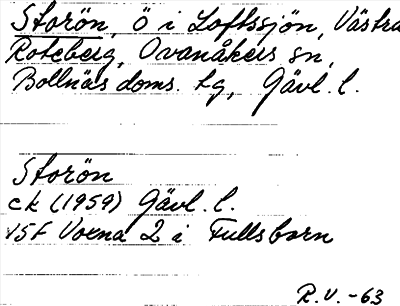 Storön, ö i Loftssjön, Västra
Roteberg, Ovanåkers sn,
Bollnäs doms. hg, Gävl. l.
Storön
ck (1959) Gävl. l.
VSF Voxna 2 i Fullsborn
R.V. -63